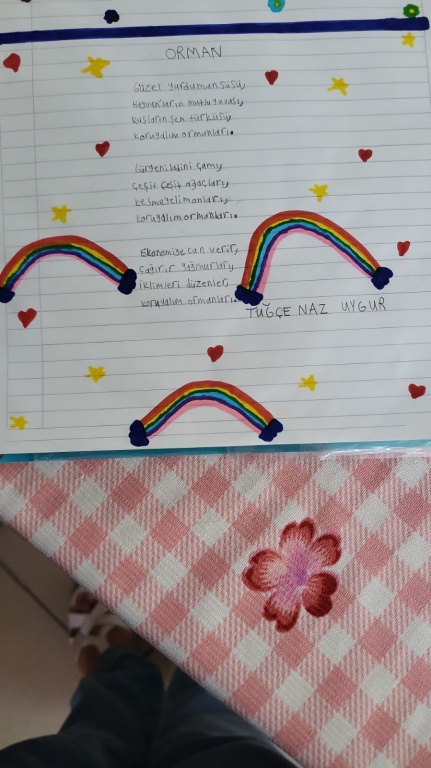 ORMAN
Güzel yurdumun süsü,
Hayvanların mutlu yuvası,
Kuşların şen türküsü,
Koruyalım ormanları.
Gürgeni, çamı,
Çeşit çeşit ağaçları,
Kesmeyelim onları,
Koruyalım ormanları.
Ekonomiye can verir,
Çağırır yağmurları,
iklimleri düzenler,
koruyalım ormanları.
TUĞÇE NAZ UYGUR